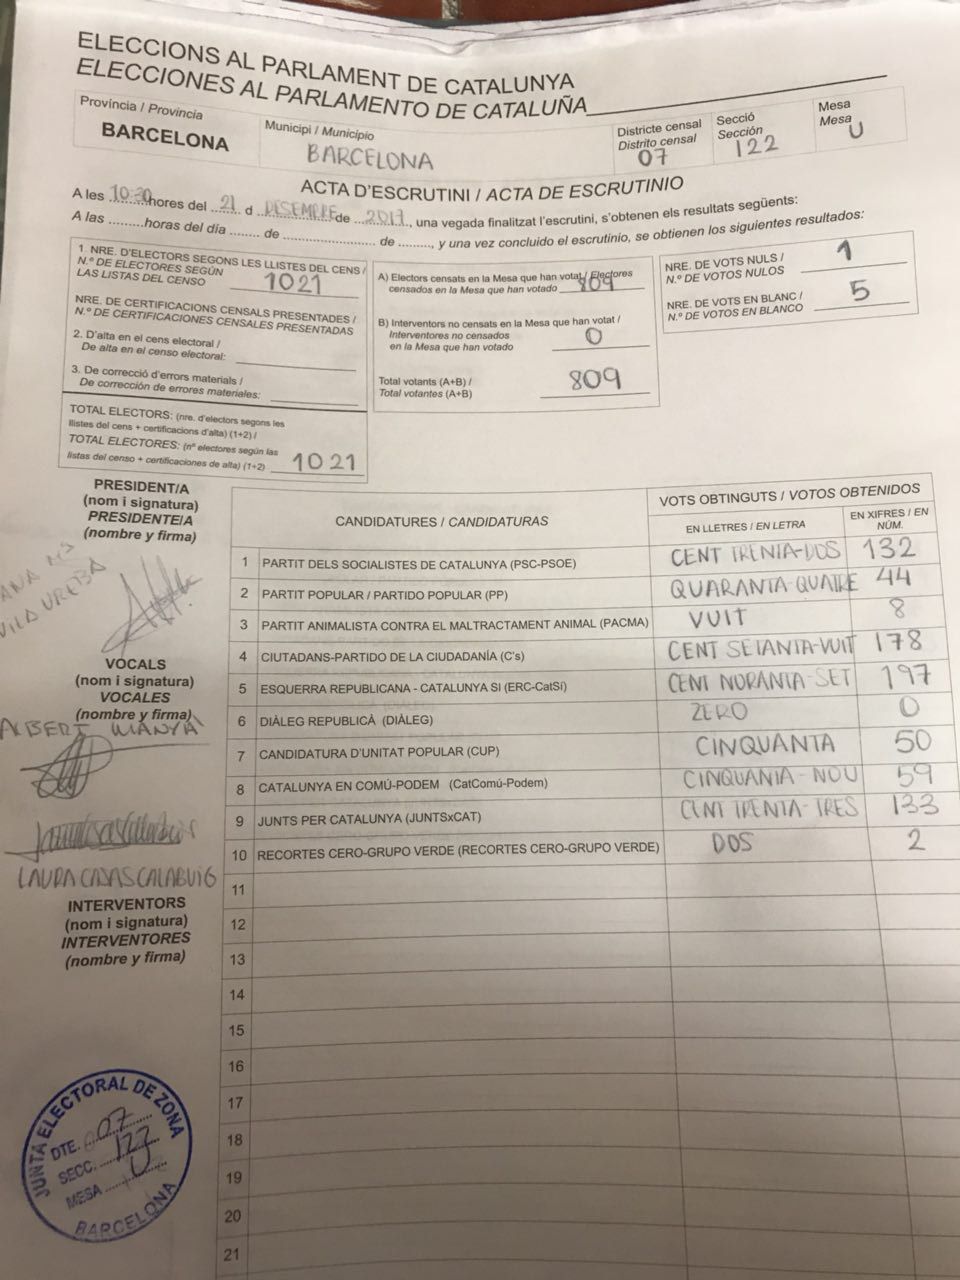 ELECCIONS AL PARLAMENT DE CATALUNYA
ELECCIONES AL PARLAMENTO DE CATALUÑA
Província / Provincia
BARCELONA
Municipi / Municipio
BARCELONA
Districte censal
Distrito censal
07
Secció
Sección
122
Mesa
Mesa
U
ACTA D'ESCRUTINI / ACTA DE ESCRUTINIO
A les 10:30 hores del 21 d DESEMBRE de 2017, una vegada finalitzat l'escrutini, s'obtenen els resultats següents:
A las .........horas del día ........ de ........................ de ........., y una vez concluido el escrutinio, se obtienen los siguientes resultados:
1. NRE. D'ELECTORS SEGONS LES LLISTES DEL CENS /
N.º DE ELECTORES SEGÚN
LAS LISTAS DEL CENSO 1021
NRE. DE CERTIFICACIONS CENSALS PRESENTADES /
N.º DE CERTIFICACIONES CENSALES PRESENTADAS
2. D'alta en el cens electoral /
De alta en el censo electoral:
3. De correcció d'errors materials /
De corrección de errores materiales:
TOTAL ELECTORS: (nre. d'electors segons les
llistes del cens + certificacions d'alta) (1+2) /
TOTAL ELECTORES: (nº electores según las
listas del censo + certificaciones de alta) (1+2) 1021
A) Electors censats en la Mesa que han votat / Electores
censados en la Mesa que han votado 809
B) Interventors no censats en la Mesa que han votat /
Interventores no censados
en la Mesa que han votado 0
Total votants (A+B) /
Total votantes (A+B) 809
NRE. DE VOTS NULS /
N.º DE VOTOS NULOS 1
NRE. DE VOTS EN BLANC /
N.º DE VOTOS EN BLANCO 5
PRESIDENT/A
(nom i signatura)
PRESIDENTE/A
(nombre y firma)
ANA Mª
VOCALS
(nom i signatura)
VOCALES
(nombre y firma)
ALBERT
LAURA CASAS CALABUIG
INTERVENTORS
(nom i signatura)
INTERVENTORES
(nombre y firma)
CANDIDATURES / CANDIDATURAS
VOTS OBTINGUTS / VOTOS OBTENIDOS
EN LLETRES / EN LETRA
EN XIFRES / EN NÚM.
1 PARTIT DELS SOCIALISTES DE CATALUNYA (PSC-PSOE) CENT TRENTA-DOS 132
2 PARTIT POPULAR / PARTIDO POPULAR (PP) QUARANTA-QUATRE 44
3 PARTIT ANIMALISTA CONTRA EL MALTRACTAMENT ANIMAL (PACMA) VUIT 8
4 CIUTADANS-PARTIDO DE LA CIUDADANÍA (C's) CENT SETANTA-VUIT 178
5 ESQUERRA REPUBLICANA - CATALUNYA SI (ERC-CatSí) CENT NORANTA-SET 197
6 DIÀLEG REPUBLICÀ (DIÀLEG) ZERO 0
7 CANDIDATURA D'UNITAT POPULAR (CUP) CINQUANTA 50
8 CATALUNYA EN COMÚ-PODEM (CatComú-Podem) CINQUANTA-NOU 59
9 JUNTS PER CATALUNYA (JUNTSxCAT) CENT TRENTA-TRES 133
10 RECORTES CERO-GRUPO VERDE (RECORTES CERO-GRUPO VERDE) DOS 2
11
12
13
14
15
16
17
18
19
20
21
JUNTA ELECTORAL DE ZONA
DTE. 07
SECC. 122
MESA U
BARCELONA